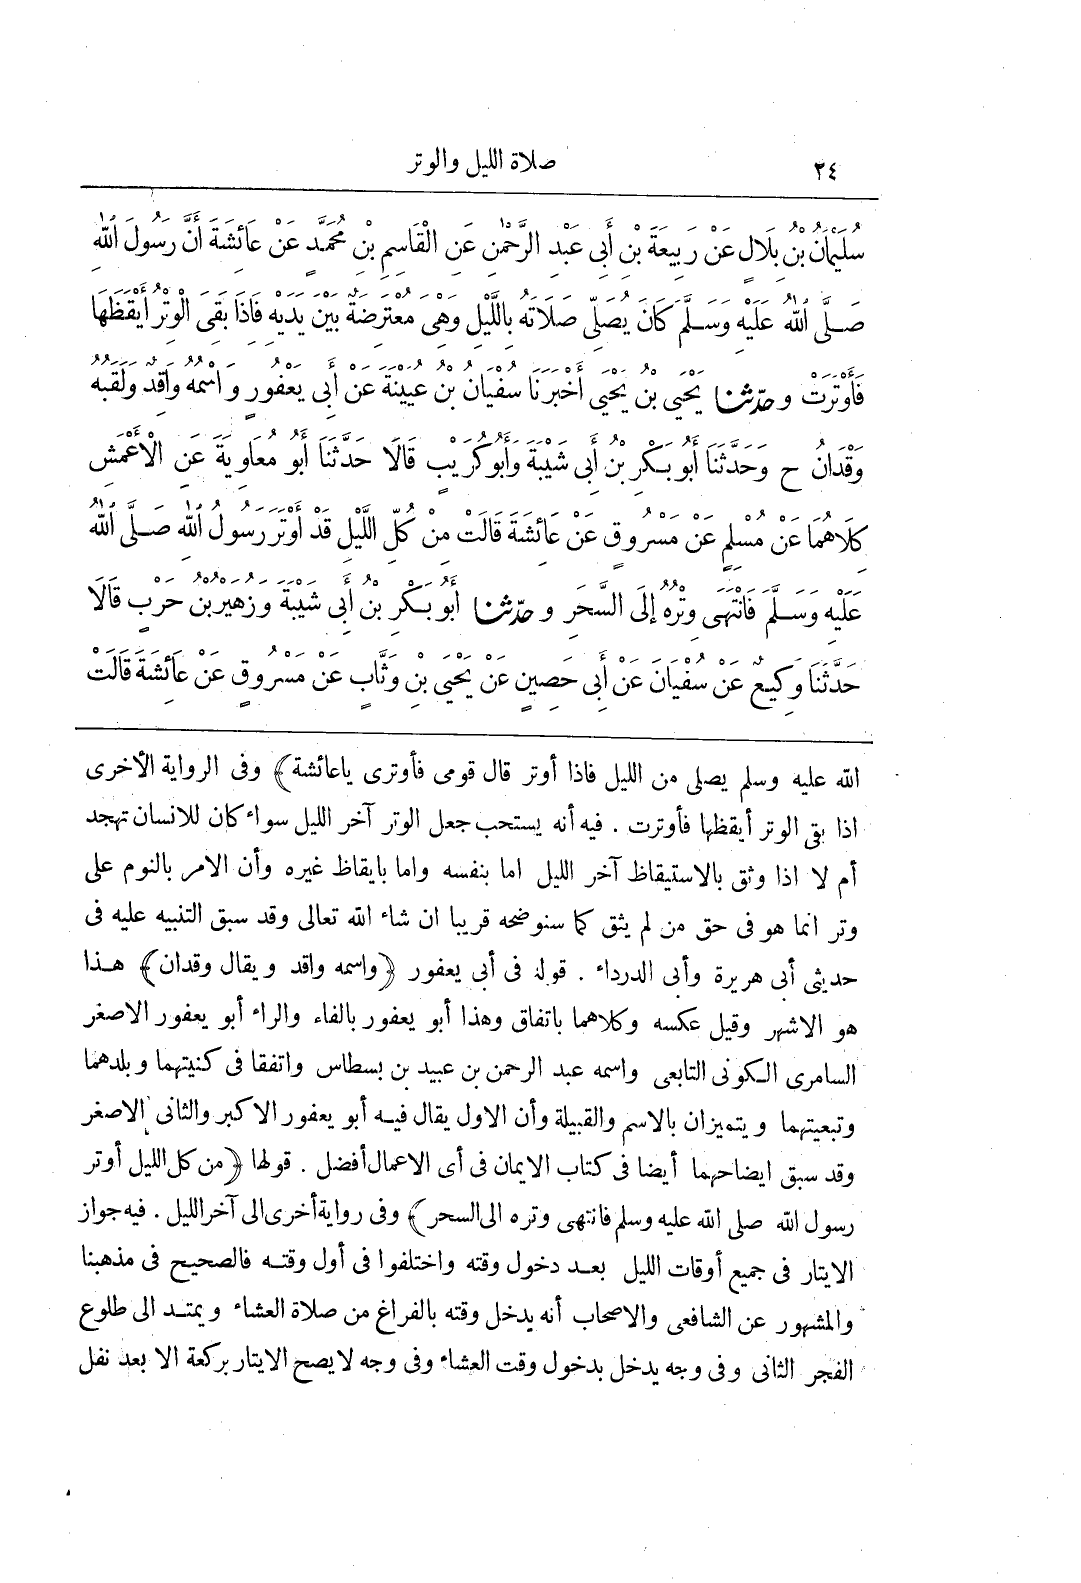 ٢٤ صلاة الليل والوتر
سُلَيْمَانُ بْنُ بِلَالٍ عَنْ رَبِيعَةَ بْنِ أَبِي عَبْدِ الرَّحْمٰنِ عَنِ الْقَاسِمِ بْنِ مُحَمَّدٍ عَنْ عَائِشَةَ أَنَّ رَسُولَ اللهِ
صَلَّى اللهُ عَلَيْهِ وَسَلَّمَ كَانَ يُصَلِّي صَلَاتَهُ بِاللَّيْلِ وَهِيَ مُعْتَرِضَةٌ بَيْنَ يَدَيْهِ فَإِذَا بَقِيَ الْوِتْرُ أَيْقَظَهَا
فَأَوْتَرَتْ وحدثنا يَحْيَى بْنُ يَحْيَى أَخْبَرَنَا سُفْيَانُ بْنُ عُيَيْنَةَ عَنْ أَبِي يَعْفُورٍ وَاسْمُهُ وَاقِدٌ وَلَقَبُهُ
وَقْدَانُ ح وَحَدَّثَنَا أَبُو بَكْرِ بْنُ أَبِي شَيْبَةَ وَأَبُو كُرَيْبٍ قَالَا حَدَّثَنَا أَبُو مُعَاوِيَةَ عَنِ الْأَعْمَشِ
كِلَاهُمَا عَنْ مُسْلِمٍ عَنْ مَسْرُوقٍ عَنْ عَائِشَةَ قَالَتْ مِنْ كُلِّ اللَّيْلِ قَدْ أَوْتَرَ رَسُولُ اللهِ صَلَّى اللهُ
عَلَيْهِ وَسَلَّمَ فَانْتَهَى وِتْرُهُ إِلَى السَّحَرِ وحدثنا أَبُو بَكْرِ بْنُ أَبِي شَيْبَةَ وَزُهَيْرُ بْنُ حَرْبٍ قَالَا
حَدَّثَنَا وَكِيعٌ عَنْ سُفْيَانَ عَنْ أَبِي حَصِينٍ عَنْ يَحْيَى بْنِ وَثَّابٍ عَنْ مَسْرُوقٍ عَنْ عَائِشَةَ قَالَتْ
الله عليه وسلم يصلى من الليل فاذا أوتر قال قومى فأوترى ياعائشة﴾ وفى الرواية الأخرى
اذا بقى الوتر أيقظها فأوترت . فيه أنه يستحب جعل الوتر آخر الليل سواء كان للانسان تهجد
أم لا اذا وثق بالاستيقاظ آخر الليل اما بنفسه واما بايقاظ غيره وأن الامر بالنوم على
وتر انما هو فى حق من لم يثق كما سنوضحه قريبا ان شاء الله تعالى وقد سبق التنبيه عليه فى
حديثى أبى هريرة وأبى الدرداء . قوله فى أبى يعفور ﴿واسمه واقد ويقال وقدان﴾ هذا
هو الاشهر وقيل عكسه وكلاهما باتفاق وهذا أبو يعفور بالفاء والراء أبو يعفور الاصغر
السامرى الكونى التابعى واسمه عبد الرحمن بن عبيد بن بسطاس واتفقا فى كنيتهما وبلدهما
وتبعيتهما ويتميزان بالاسم والقبيلة وأن الاول يقال فيه أبو يعفور الاكبر والثانى الاصغر
وقد سبق ايضاحهما أيضا فى كتاب الايمان فى أى الاعمال أفضل . قولها ﴿من كل الليل أوتر
رسول الله صلى الله عليه وسلم فانتهى وتره الى السحر﴾ وفى رواية أخرى الى آخر الليل . فيه جواز
الايتار فى جميع أوقات الليل بعد دخول وقته واختلفوا فى أول وقته فالصحيح فى مذهبنا
والمشهور عن الشافعى والاصحاب أنه يدخل وقته بالفراغ من صلاة العشاء ويمتد الى طلوع
الفجر الثانى وفى وجه يدخل بدخول وقت العشاء وفى وجه لا يصح الايتار بركعة الا بعد نفل